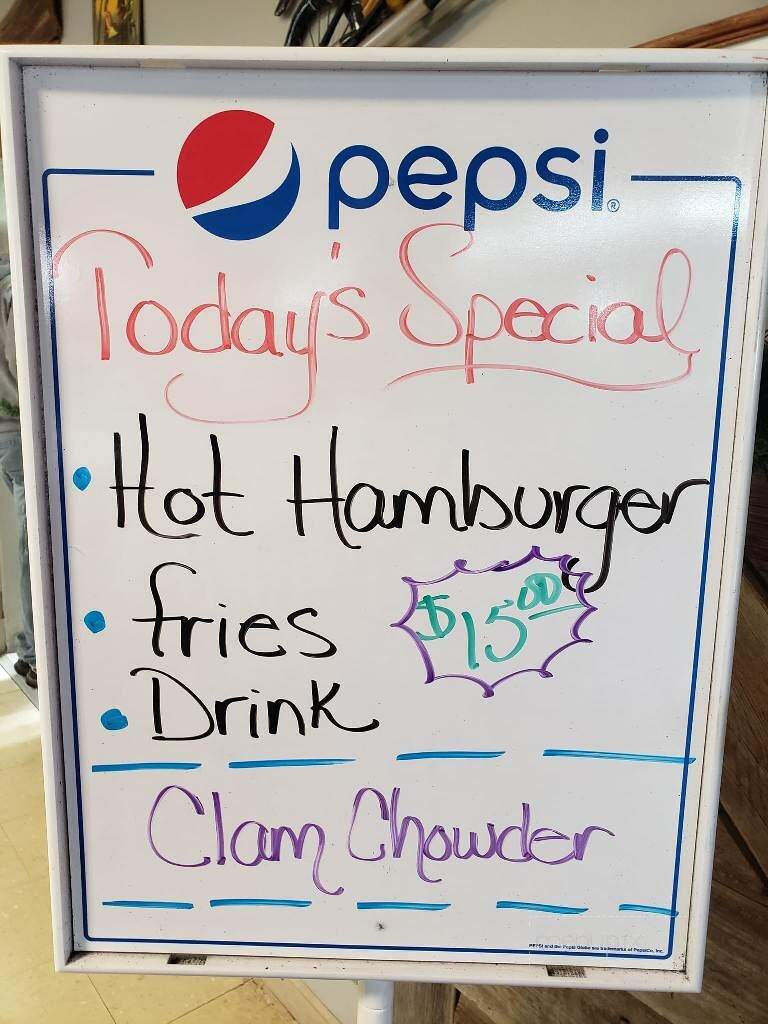 pepsi®
Today's Special
• Hot Hamburger
• fries
$15.00
• Drink
Clam Chowder
PEPSI and the Pepsi Globe are trademarks of PepsiCo, Inc.